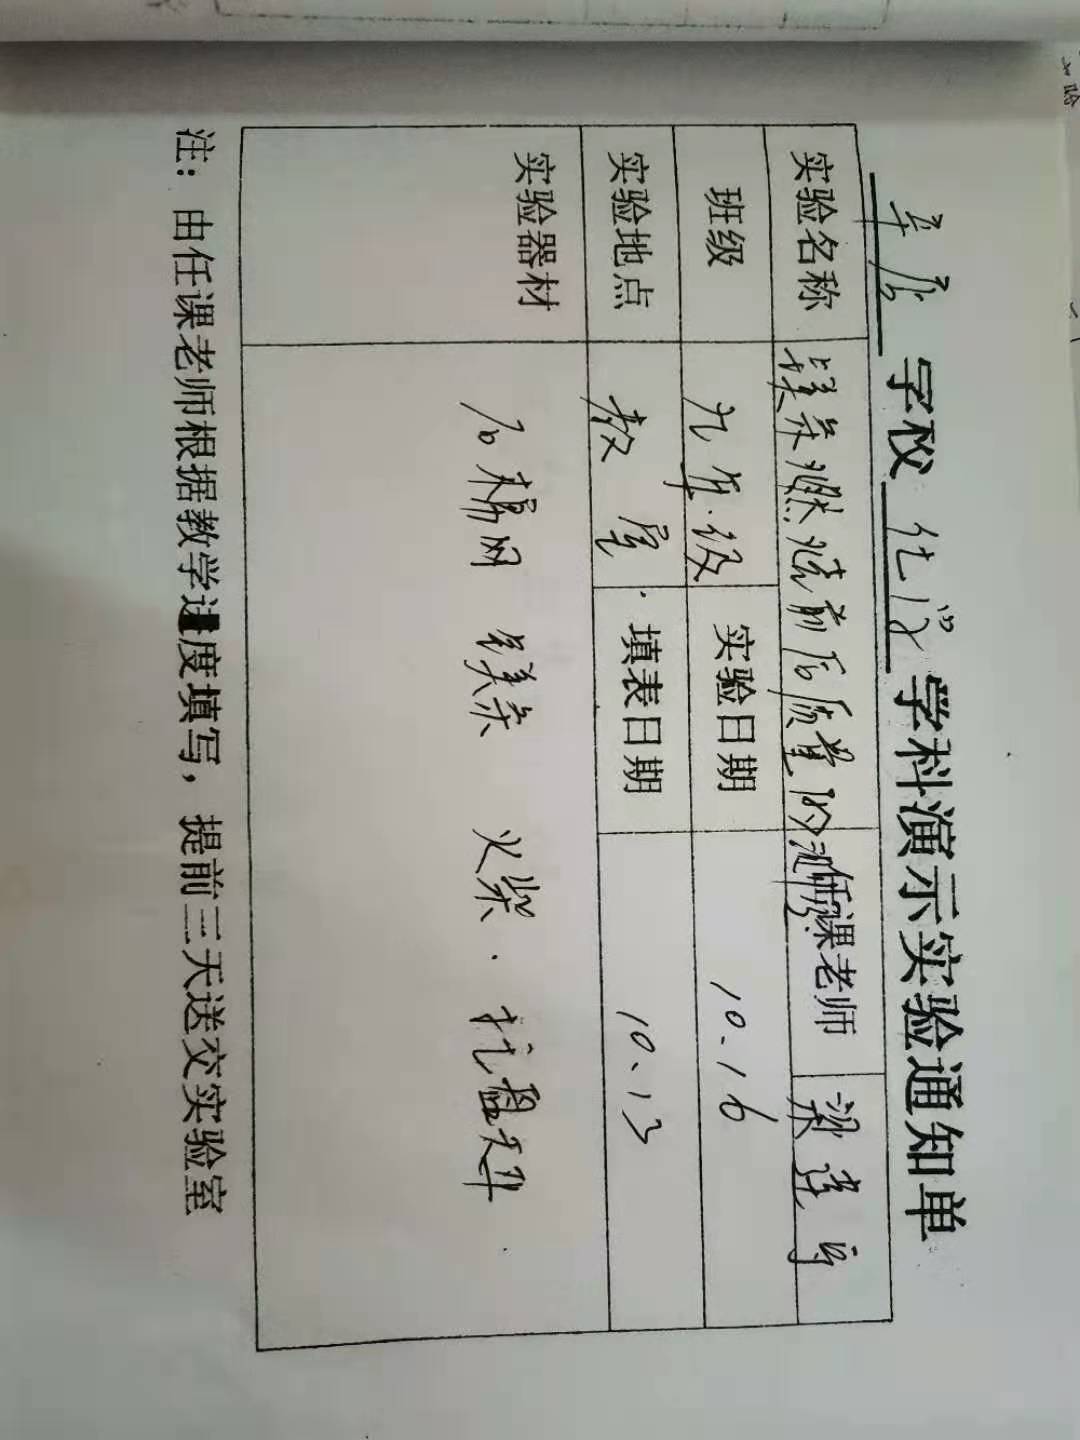 学校 化学 学科演示实验通知单
实验名称 镁条燃烧前后质量的测定 任课老师 梁连
班级 九年级 实验日期 10.16
实验地点 教室 填表日期 10.13
实验器材 石棉网 镁条 火柴. 托盘天平
注：由任课老师根据教学进度填写，提前三天送交实验室